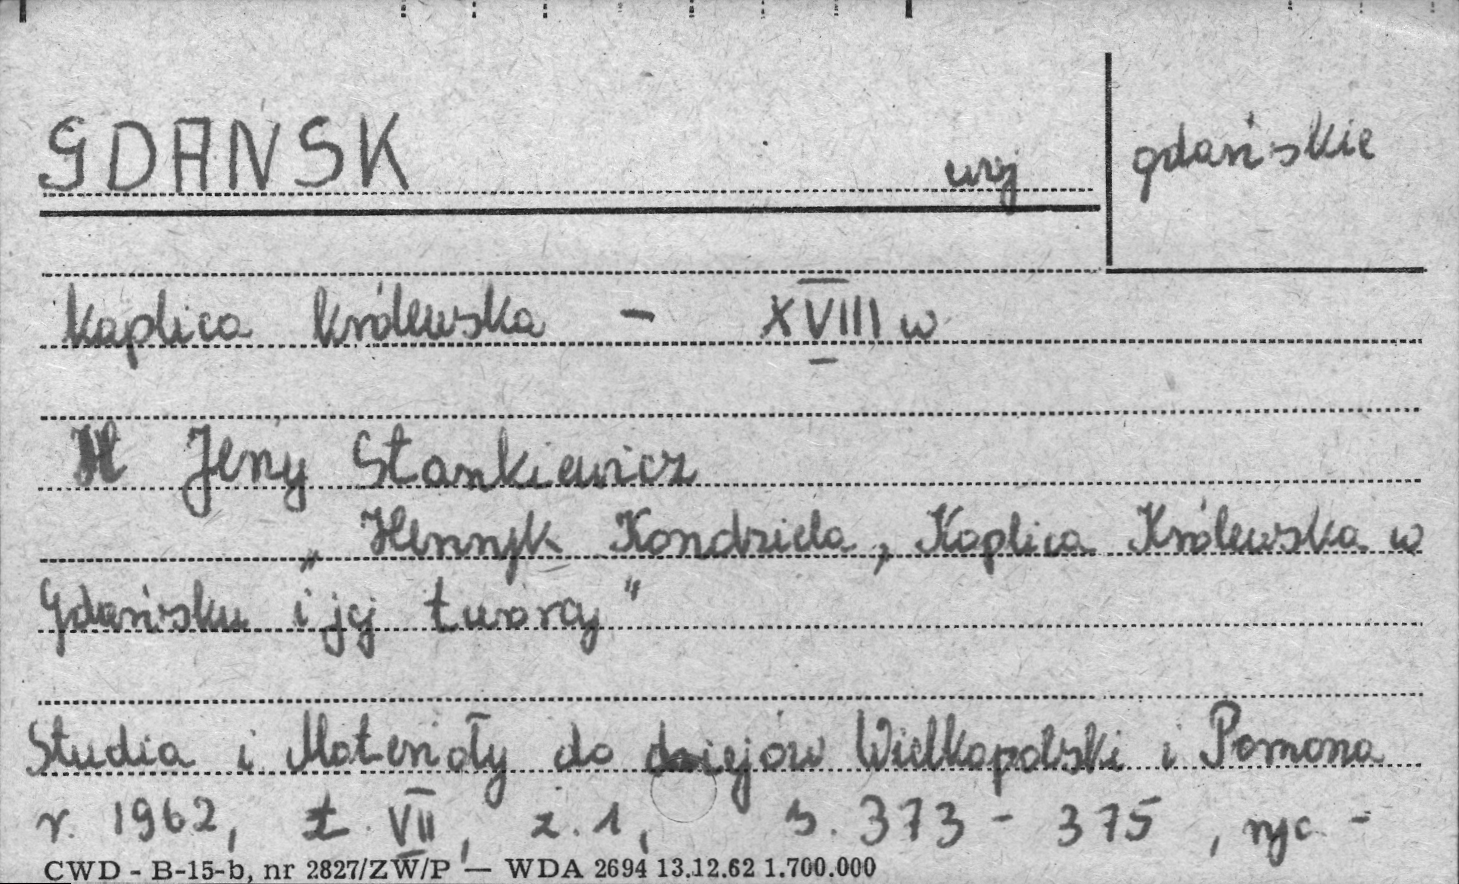 GDANSK wrj gdańskie
Kaplica Królewska - XVIII w
Jerzy Stankiewicz
„Henryk Kondziela, Kaplica Królewska w
Gdańsku i jej twórcy"
Studia i Materiały do dziejów Wielkopolski i Pomorza
r. 1962, t. VII, z. 1, s. 373 - 375, ryc -
CWD - B-15-b, nr 2827/ZW/P — WDA 2694 13.12.62 1.700.000